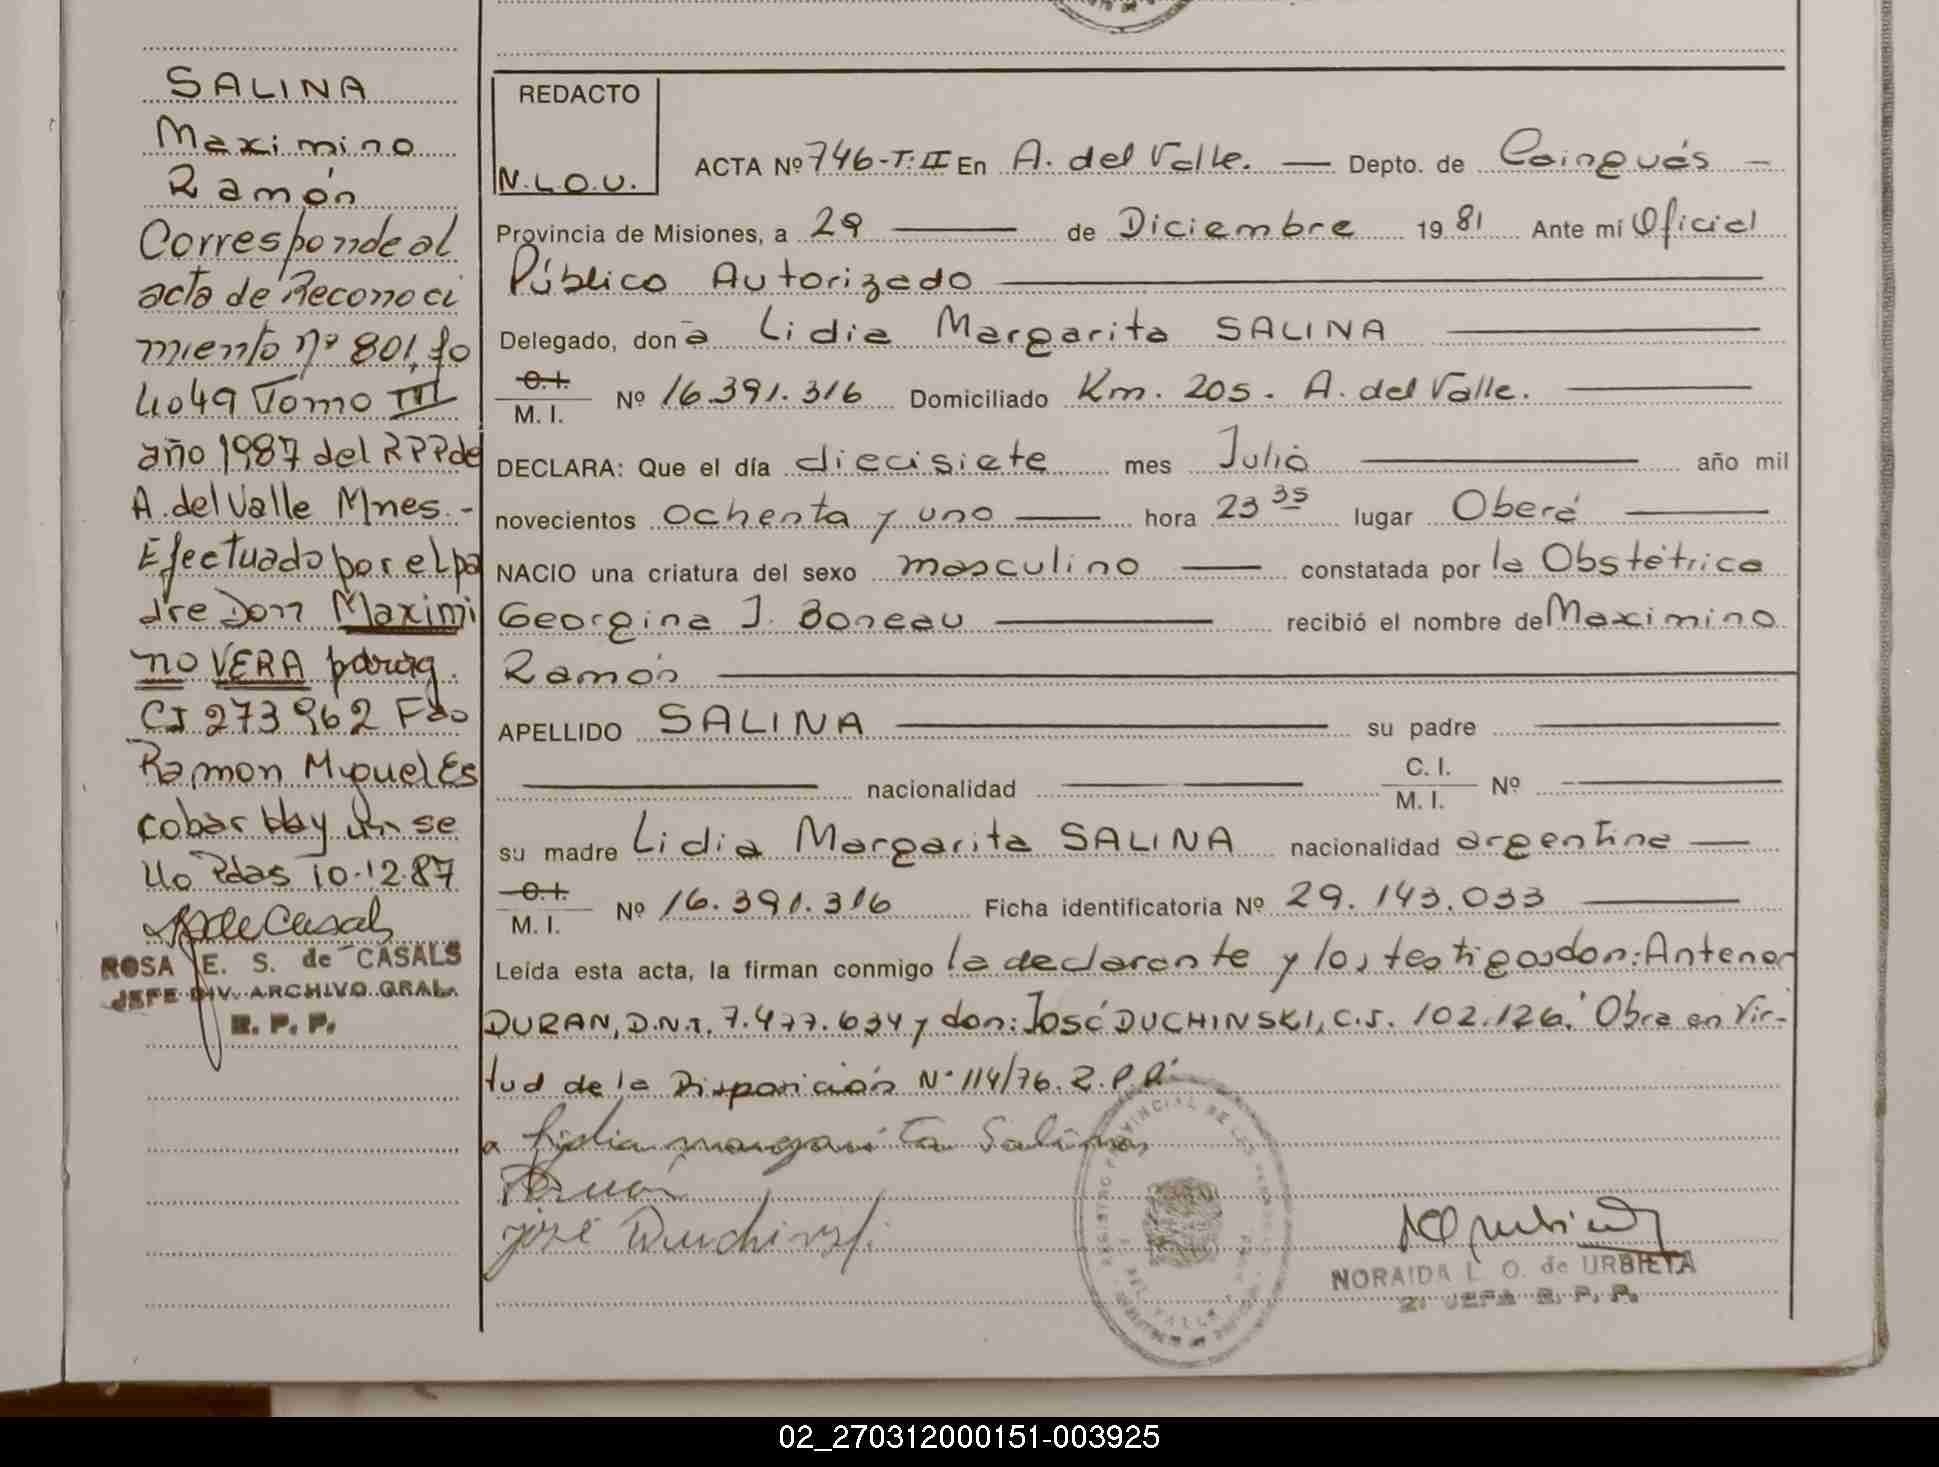 SALINA
Maximino
Ramón
Corresponde al
acta de Reconoci
miento nº 801, fo
llo 49 Tomo III
año 1987 del RPP de
A. del Valle Mnes.-
Efectuado por el pa
dre Don Maximi
no VERA parag.
CI 273962 Fdo
Ramon Miguel Es
cobar Hay un se
llo Pdas 10-12-87
ROSA E. S. de CASALS
JEFE DIV. ARCHIVO GRAL.
R. P. P.
REDACTO
N.L.O.U.
ACTA Nº 746-T.II En A. del Valle. — Depto. de Cainguás —
Provincia de Misiones, a 29 — de Diciembre 1981 Ante mí Oficial
Público Autorizado —
Delegado, don a Lidia Margarita SALINA —
C.I. M. I. Nº 16.391.316 Domiciliado Km. 205. A. del Valle. —
DECLARA: Que el día diecisiete mes Julio — año mil
novecientos ochenta y uno — hora 23 35 lugar Oberá —
NACIO una criatura del sexo masculino — constatada por la Obstétrica
Georgina J. Boneau — recibió el nombre de Maximino
Ramón —
APELLIDO SALINA — su padre —
— nacionalidad — C. I. M. I. Nº —
su madre Lidia Margarita SALINA nacionalidad argentina —
C.I. M. I. Nº 16.391.316 Ficha identificatoria Nº 29.143.033 —
Leída esta acta, la firman conmigo la declarante y los testigos don: Antenor
DURAN, D.N.I. 7.477.634 y don: José DUCHINSKI, C.I. 102.126. Obra en Vir-
tud de la Disposición Nº 114/76. R.P.P.
Lidia margarita Salina
Duran
José Duchinski
REGISTRO PROVINCIAL DE LAS PERSONAS
NORAIDA L. O. de URBIETA
2ª JEFA R. P. P.
02_270312000151-003925